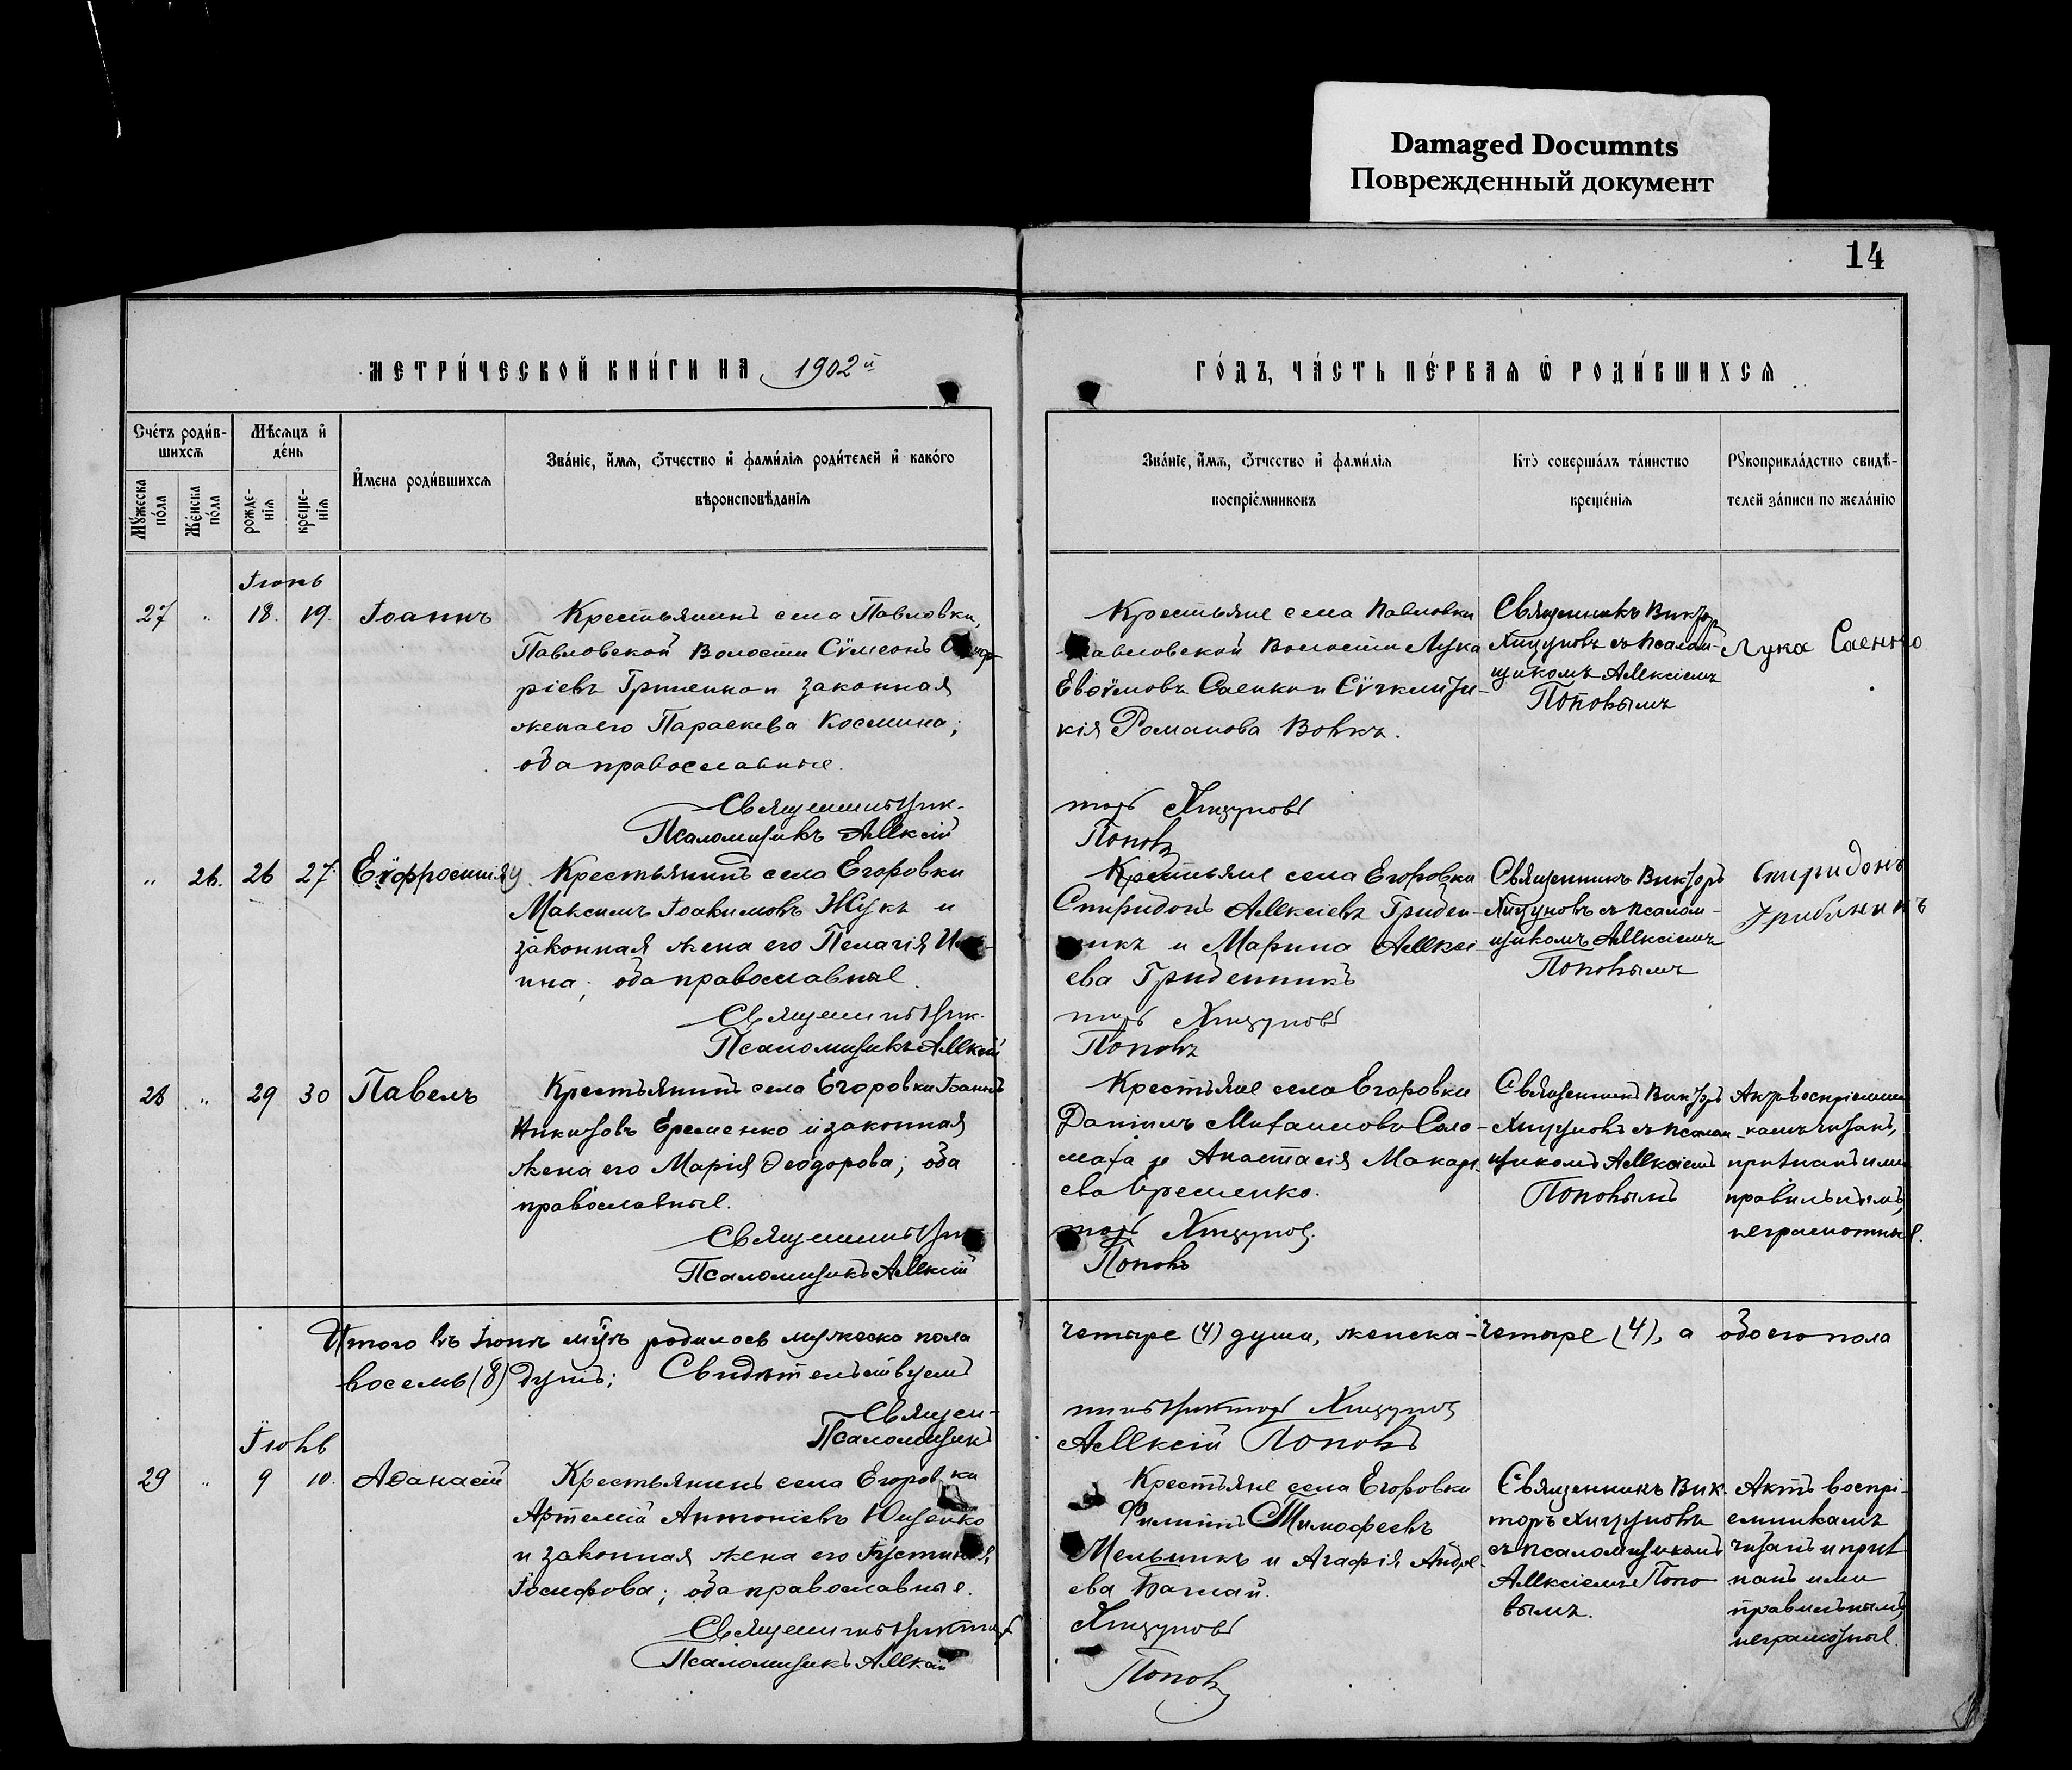 Damaged Documnts
Поврежденный документ
14
МЕТРИ́ЧЕСКОЙ КНИ́ГИ НА 1902й
ГО́ДЪ, ЧА́СТЬ ПЕ́РВАЯ Ѡ РОДИ́ВШИХСЯ
Сче́тъ роди́в-
шихся
Мѣсяцъ и
де́нь
Му́жеска
по́ла
Же́нска
по́ла
рожде-
нія
креще-
нія
И́мена роди́вшихся
Зва́ніе, и́мя, о́тчество и фами́лія роди́телей и како́го
вѣроисповѣданія
Зва́ніе, и́мя, о́тчество и фами́лія
воспріе́мниковъ
Кто̀ соверша́лъ та́инство
креще́нія
Рукоприкла́дство свидѣ-
телей за́писи по жела́нію
Іюнь
27 " 18. 19. Іоаннъ
Крестьянинъ села Павловки,
Павловской Волости Сѵмеонъ
ріевъ Гриненко и законная
жена его Параскева Космина;
оба православные.
Священникъ Вик-
Псаломщикъ Алексій
Крестьяне села Павловки
Павловской Волости Лука
Евѳимовъ Саенко и
кія Романова Вовкъ.
торъ Хицуновъ
Поповъ
Священникъ Викторъ
Хицуновъ съ псалом-
щикомъ Алексіемъ
Поповымъ
Лука Саенко
" 26. 26 27 Еѵфросинія
Крестьянинъ села Егоровки
Максимъ Іоакимовъ Жукъ и
законная жена его Пелагія
ина; оба православные.
Священникъ Вик-
Псаломщикъ Алексій
Крестьяне села Егоровки
Спиридонъ Алексіевъ Гребен-
никъ и Марина Алексі-
ева Гребенникъ
торъ Хицуновъ
Поповъ
Священникъ Викторъ
Хицуновъ съ псалом-
щикомъ Алексіемъ
Поповымъ
Спиридонъ
Грибиникъ
28 " 29 30 Павелъ
Крестьянинъ села Егоровки Іоаннъ
Никитовъ Еременко и законная
жена его Марія Ѳеодорова; оба
православные.
Священникъ Вик
Псаломщикъ Алексій
Крестьяне села Егоровки
Даніилъ Михаиловъ Соло-
маха и Анастасія Макарі-
ева Еременко.
торъ Хицуновъ
Поповъ
Священникъ Викторъ
Хицуновъ съ псалом-
щикомъ Алексіемъ
Поповымъ
Актъ воспріемни
камъ читанъ,
признанъ ими
правильнымъ,
неграмотные.
Итого въ Іюнѣ мѣсяцѣ родилось мужеска пола
четыре (4) души, женска - четыре (4), а обоего пола
восемь (8) душъ; Свидѣтельствуемъ
Священ-
Псаломщикъ
никъ Викторъ Хицуновъ
Алексій Поповъ
Іюль
29 " 9 10. Аѳанасій
Крестьянинъ села Егоровки
Артемій Антоніевъ Ющенко
и законная жена его Іустинія
Іосифова; оба православные.
Священникъ Викторъ
Псаломщикъ Алексій
Крестьяне села Егоровки
Филиппъ Тимофеевъ
Мельникъ и Агафія Андре-
ева Багмай.
Хицуновъ
Поповъ
Священникъ Вик-
торъ Хицуновъ
съ псаломщикомъ
Алексіемъ Попо
вымъ.
Актъ воспрі-
емникамъ
читанъ и приз
нанъ ими
правильнымъ,
неграмотные.